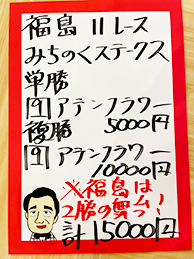 福島11レース
みちのくステークス
単勝
[9]アテンフラワー
5000円
複勝
[9]アテンフラワー
10000円
※福島は
2勝の舞台!
計15000円